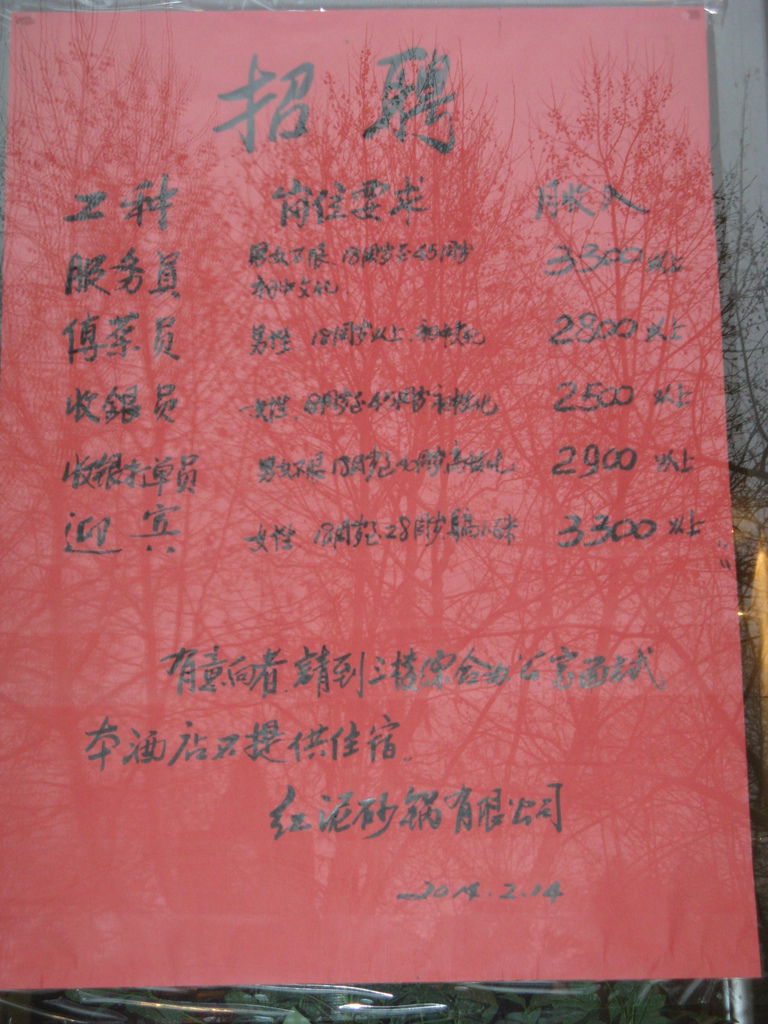 招聘
工种 岗位要求 月收入
服务员 男女不限 18周岁至45周岁 3300以上
初中文化
传菜员 男性 18周岁以上 初中文化 2800以上
收银员 女性 18周岁至45周岁 初中文化 2500以上
收银打单员 男女不限 18周岁至40周岁 高中文化 2900以上
迎宾 女性 18周岁至28周岁 3300以上
有意向者.请到三楼综合办公室面试
本酒店不提供住宿.
红泥砂锅有限公司
2014.2.14